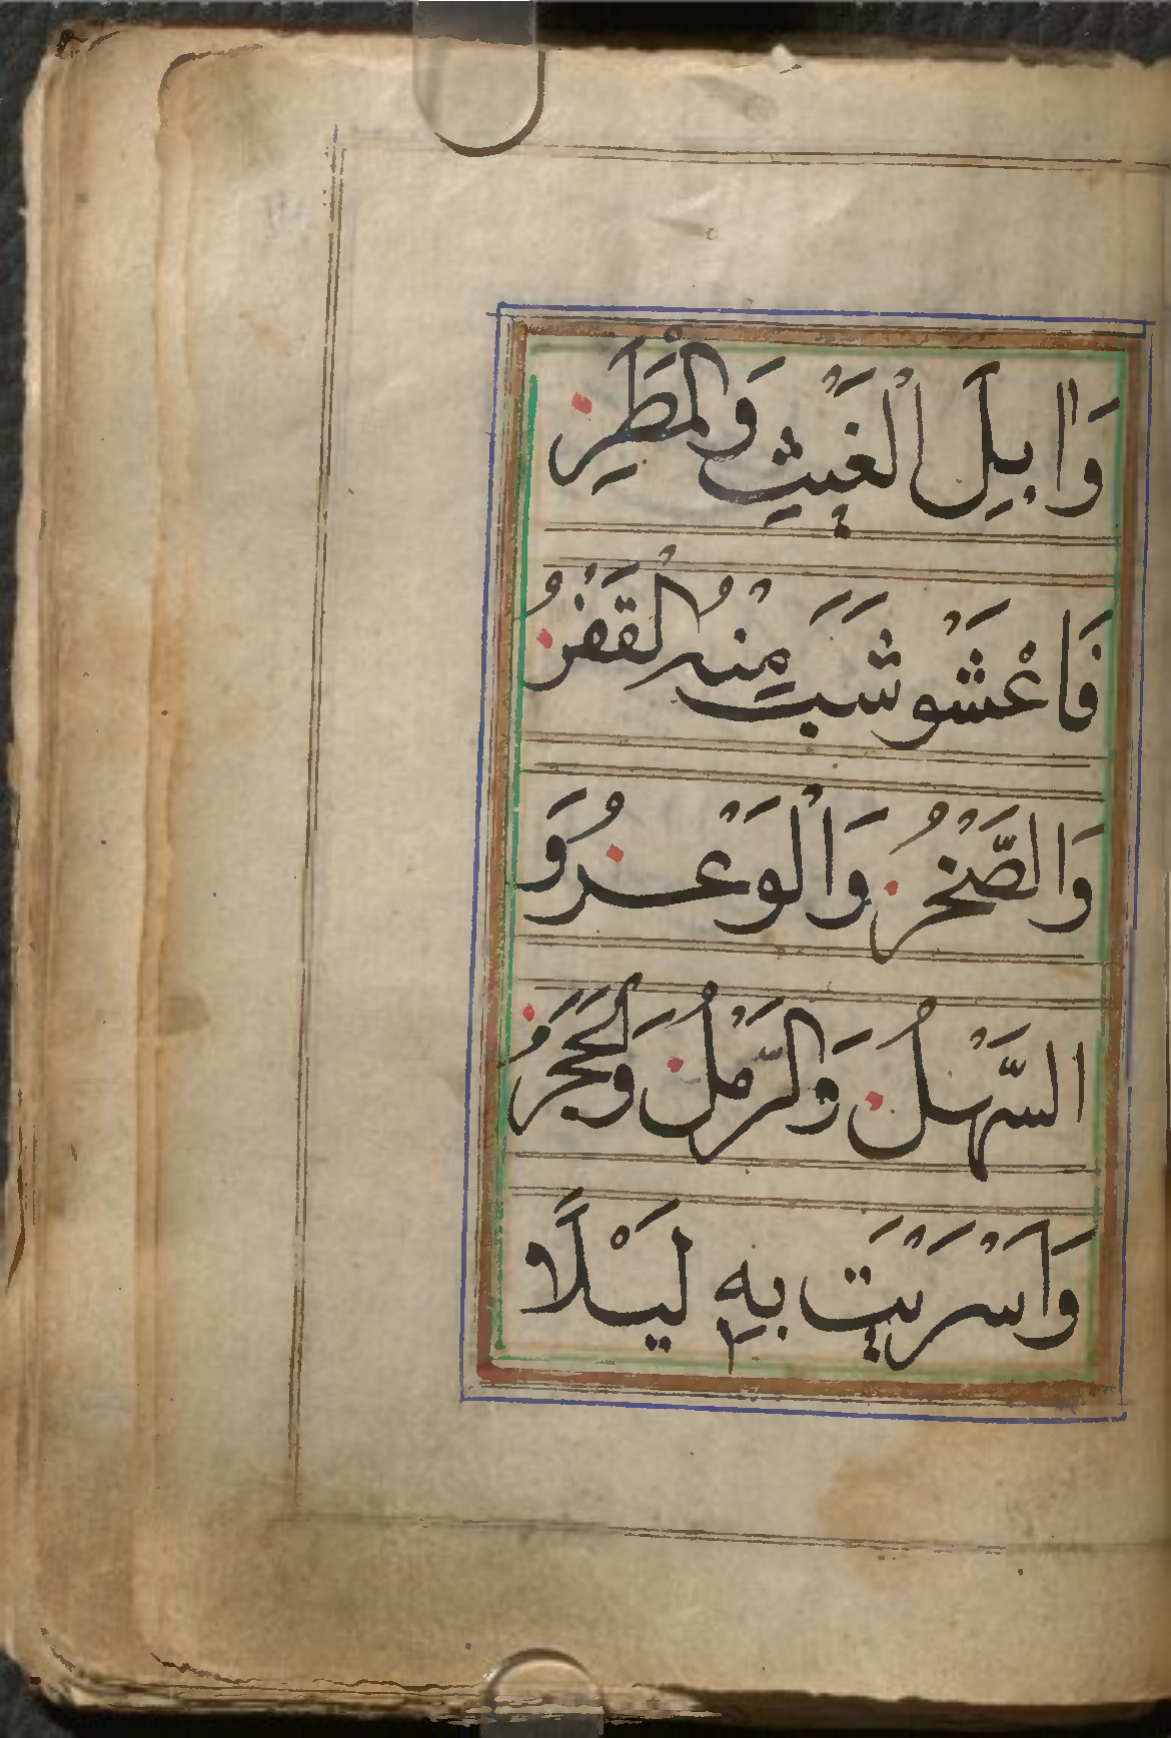 وَاٰبِلَ الْغَيْثِ وَالْمَطَرِ
فَاعْشَوْشَبَ مِنْهُ الْقَفْرُ
وَالصَّخْرُ وَالْوَعْرُ وَ
السَّهْلُ وَالرَّمْلُ وَلْحَجَرُ
وَاَسْرَيْتَ بِهٖ لَيْلًا